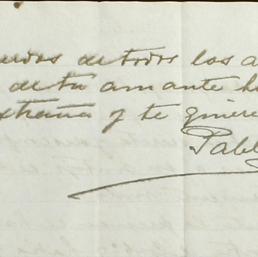 uerdos de todos los a
de tu amante h
xtraña y te quiere
Pabl